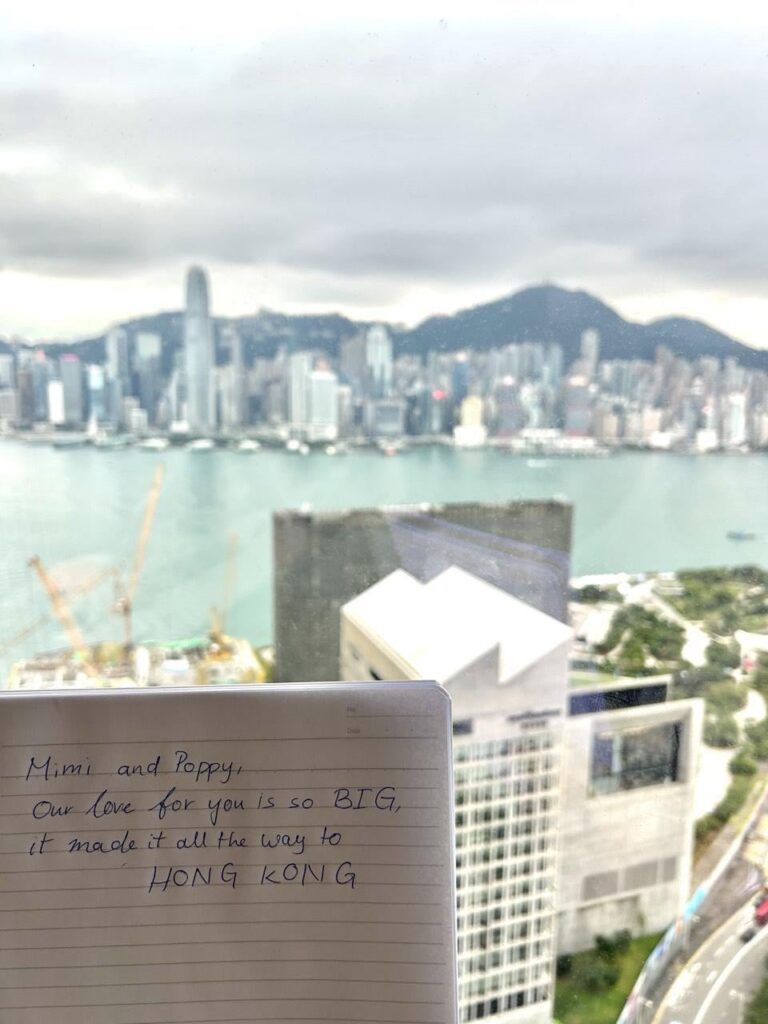 No.
Date
Mimi and Poppy,
Our love for you is so BIG,
it made it all the way to
HONG KONG